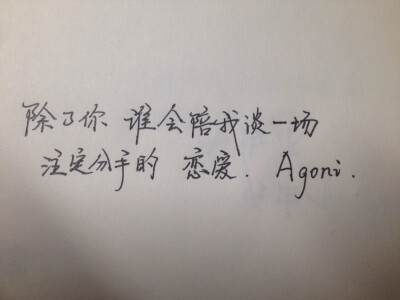 除了你 谁会陪我谈一场
注定分手的 恋爱. Agoni.